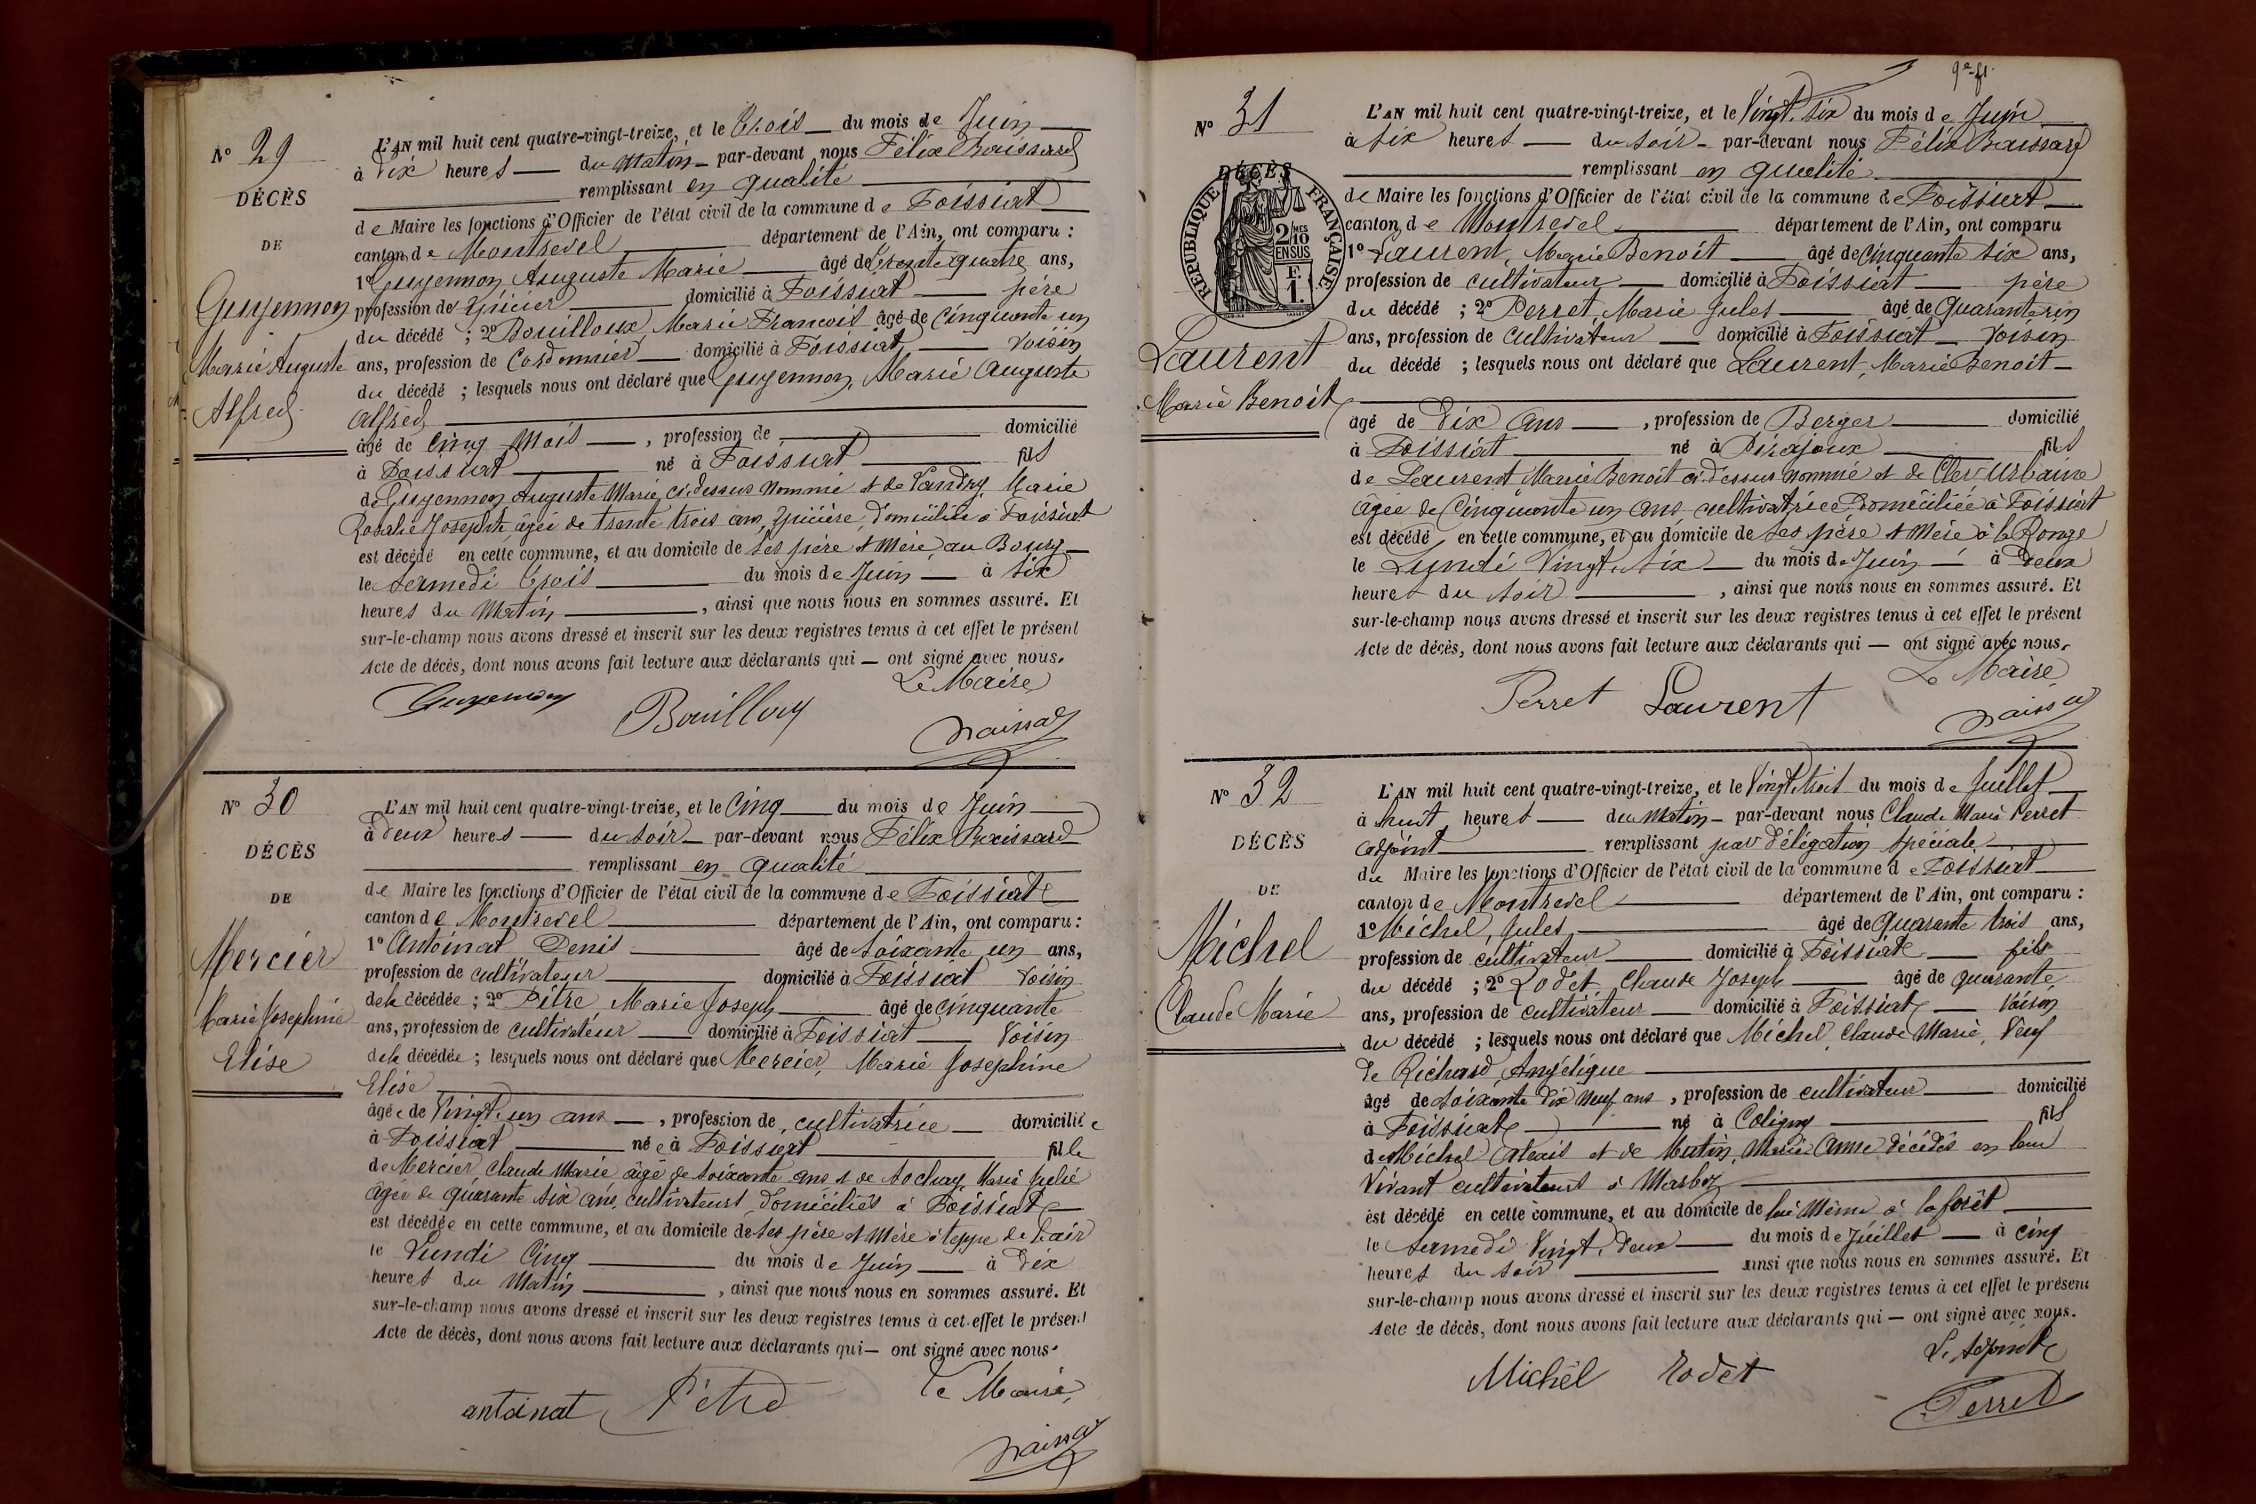 N° 29
DÉCÈS
DE
Guyennon
Marie Auguste
Alfred
L'AN mil huit cent quatre-vingt-treize, et le trois du mois de Juin
à dix heures du matin par-devant nous Félix Baissard
remplissant en qualité
de Maire les fonctions d'Officier de l'état civil de la commune de Foissiat
canton de Montrevel département de l'Ain, ont comparu :
1° Guyennon Auguste Marie âgé de trente quatre ans,
profession de Epicier domicilié à Foissiat père
du décédé ; 2° Bouilloux, Marie François âgé de cinquante un
ans, profession de Cordonnier domicilié à Foissiat, Voisin
du décédé ; lesquels nous ont déclaré que Guyennon, Marie Auguste
Alfred
âgé de cinq mois, profession de domicilié
à Foissiat né à Foissiat fils
de Guyennon Auguste Marie, ci-dessus nommé et de Landry Marie
Rosalie Josephte, âgée de trente trois ans, Epicière, domiciliée à Foissiat
est décédé en cette commune, et au domicile de ses père et mère, au Bourg
le samedi trois du mois de Juin à six
heures du matin, ainsi que nous nous en sommes assuré. Et
sur-le-champ nous avons dressé et inscrit sur les deux registres tenus à cet effet le présent
Acte de décès, dont nous avons fait lecture aux déclarants qui — ont signé avec nous.
Le Maire
Guyennon Bouilloux
Baissard
N° 30
DÉCÈS
DE
Mercier
Marie Josephine
Elise
L'AN mil huit cent quatre-vingt-treize, et le cinq du mois de Juin
à deux heures du soir par-devant nous Félix Baissard
remplissant en qualité
de Maire les fonctions d'Officier de l'état civil de la commune de Foissiat
canton de Montrevel département de l'Ain, ont comparu :
1° Antoinat Denis âgé de soixante un ans,
profession de cultivateur domicilié à Foissiat Voisin
de la décédée ; 2° Pitre Marie Joseph âgé de cinquante
ans, profession de cultivateur domicilié à Foissiat Voisin
de la décédée ; lesquels nous ont déclaré que Mercier, Marie Josephine
Elise
âgée de vingt un ans, profession de cultivatrice domiciliée
à Foissiat née à Foissiat fille
de Mercier Claude Marie âgé de soixante ans et de Sochay Marie Julie
âgée de quarante six ans, cultivateurs, domiciliés à Foissiat
est décédée en cette commune, et au domicile de ses père et mère à teppe de
le Lundi cinq du mois de Juin à dix
heures du matin, ainsi que nous nous en sommes assuré. Et
sur-le-champ nous avons dressé et inscrit sur les deux registres tenus à cet effet le présent
Acte de décès, dont nous avons fait lecture aux déclarants qui — ont signé avec nous.
Le Maire,
antoinat Pitre
Baissard
9e ft.
N° 31
DÉCÈS
RÉPUBLIQUE FRANÇAISE
2/10MES
EN SUS
F.
1.
Laurent
Marie Benoit
L'AN mil huit cent quatre-vingt-treize, et le vingt six du mois de Juin
à six heures du soir par-devant nous Félix Baissard
remplissant en qualité
de Maire les fonctions d'Officier de l'état civil de la commune de Foissiat
canton de Montrevel département de l'Ain, ont comparu
1° Laurent, Marie Benoit âgé de cinquante six ans,
profession de cultivateur domicilié à Foissiat père
du décédé ; 2° Perret, Marie Jules âgé de quarante un
ans, profession de cultivateur domicilié à Foissiat Voisin
du décédé ; lesquels nous ont déclaré que Laurent, Marie Benoit
âgé de dix ans, profession de Berger domicilié
à Foissiat né à Pirajoux fils
de Laurent Marie Benoit ci-dessus nommé et de Clerc Urbaine
âgée de cinquante un ans cultivatrice domiciliée à Foissiat
est décédé en cette commune, et au domicile de ses père et mère à la Ronge
le Lundi vingt six du mois de Juin à deux
heures du soir, ainsi que nous nous en sommes assuré. Et
sur-le-champ nous avons dressé et inscrit sur les deux registres tenus à cet effet le présent
Acte de décès, dont nous avons fait lecture aux déclarants qui — ont signé avec nous.
Le Maire
Perret Laurent
Baissard
N° 32
DÉCÈS
DE
Michel
Claude Marie
L'AN mil huit cent quatre-vingt-treize, et le vingt trois du mois de Juillet
à huit heures du matin par-devant nous Claude Marie Perret
adjoint remplissant par délégation spéciale
du Maire les fonctions d'Officier de l'état civil de la commune de Foissiat
canton de Montrevel département de l'Ain, ont comparu :
1° Michel, Jules, âgé de quarante trois ans,
profession de cultivateur domicilié à Foissiat fils
du décédé ; 2° Rodet Claude Joseph âgé de quarante
ans, profession de cultivateur domicilié à Foissiat Voisin
du décédé ; lesquels nous ont déclaré que Michel, Claude Marie, Veuf
de Richard, Angélique
âgé de soixante dix neuf ans, profession de cultivateur domicilié
à Foissiat né à Coligny fils
de Michel Alexis et de Mutin, Marie Anne décédés en leur
vivant cultivateurs à Marboz
est décédé en cette commune, et au domicile de lui même à la forêt
le samedi vingt deux du mois de Juillet à cinq
heures du soir ainsi que nous nous en sommes assuré. Et
sur-le-champ nous avons dressé et inscrit sur les deux registres tenus à cet effet le présent
Acte de décès, dont nous avons fait lecture aux déclarants qui — ont signé avec nous.
L'Adjoint
Michel Rodet
Perret